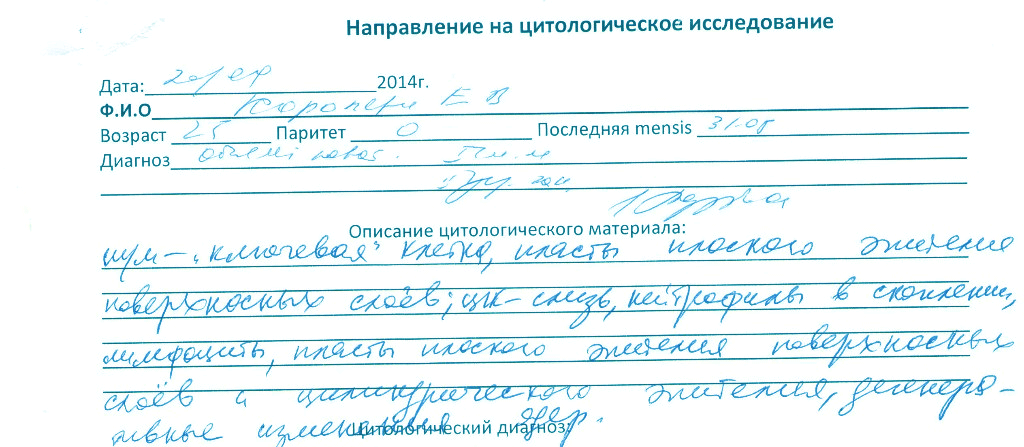 Направление на цитологическое исследование
Дата: 2014г.
Ф.И.О Е В
Возраст 25 Паритет 0 Последняя mensis 31.08
Диагноз
Описание цитологического материала:
ш/м – „ключевая" клетка, пласты плоского эпителия
поверхносных слоёв; ц/к – слизь, нейтрофилы в скоплении,
лимфоциты, пласты плоского эпителия поверхносных
слоёв и цилиндрического эпителия, дегенера-
тивные изменения ядер.
Цитологический диагноз: